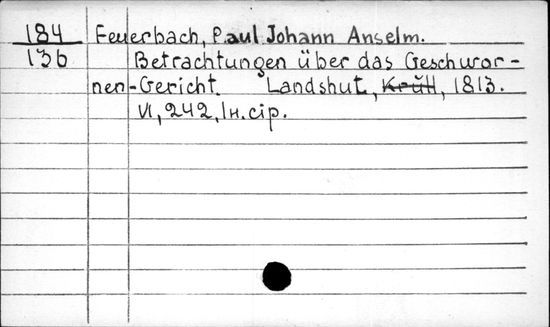 184 Feuerbach, Paul Johann Anselm.
136 Betrachtungen über das Geschwor-
nen-Gericht. Landshut, Krüll, 1813.
VI, 242, 1 н.cip.